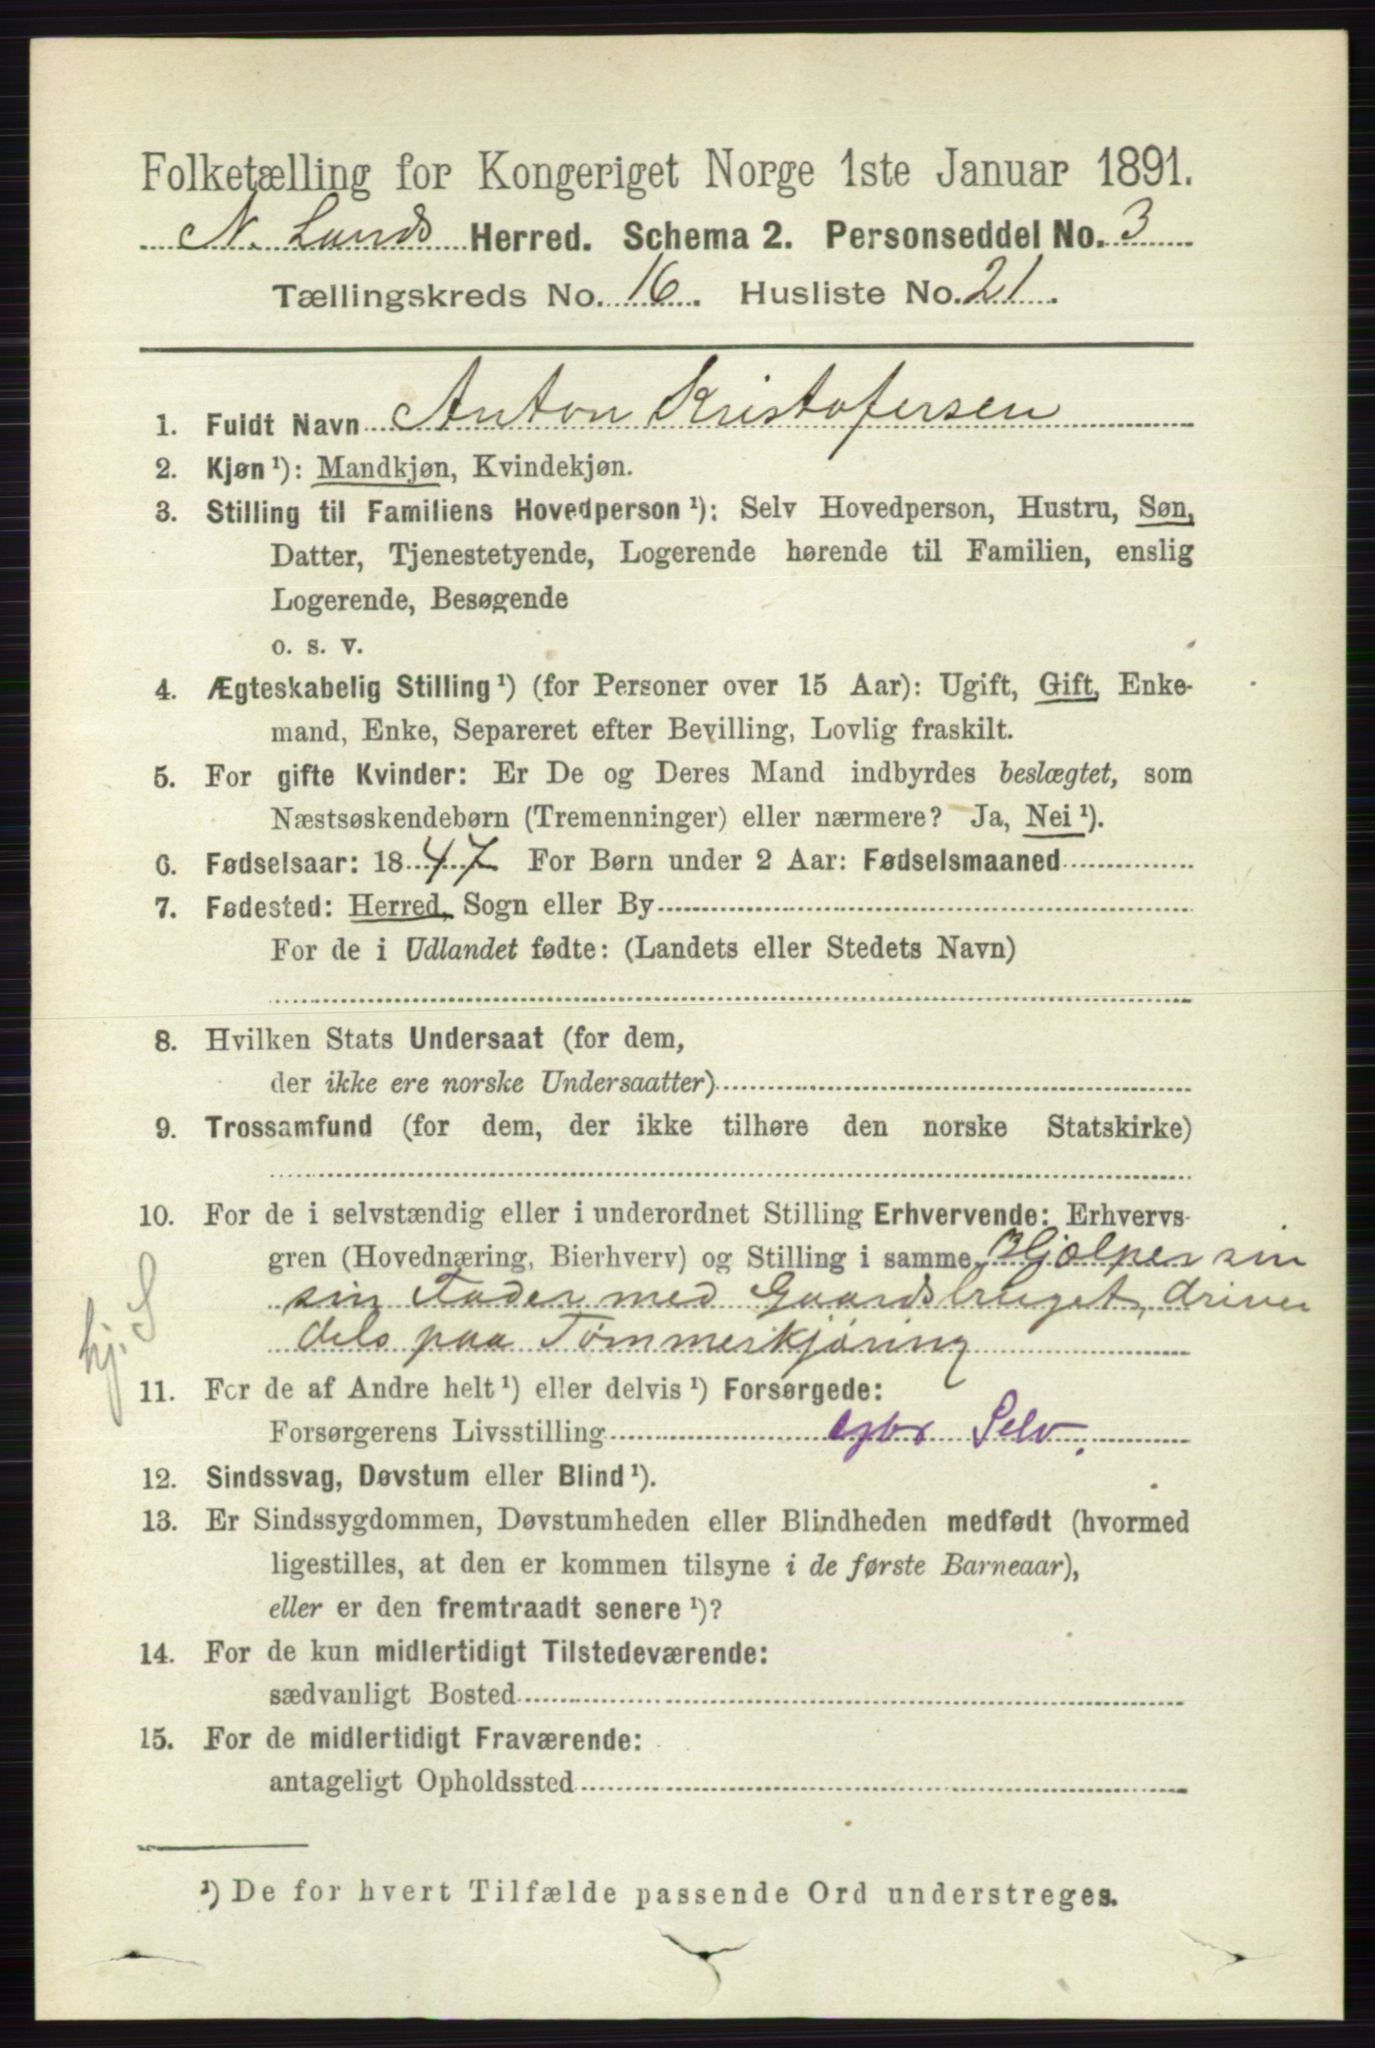 Folketælling for Kongeriget Norge 1ste Januar 1891.
N. Lands Herred. Schema 2. Personseddel No. 3
Tællingskreds No. 16. Husliste No. 21.
1. Fuldt Navn Anton Kristofersen
2. Kjøn ¹): Mandkjøn, Kvindekjøn.
3. Stilling til Familiens Hovedperson ¹): Selv Hovedperson, Hustru, Søn,
Datter, Tjenestetyende, Logerende hørende til Familien, enslig
Logerende, Besøgende
o. s. v.
4. Ægteskabelig Stilling ¹) (for Personer over 15 Aar): Ugift, Gift, Enke-
mand, Enke, Separeret efter Bevilling, Lovlig fraskilt.
5. For gifte Kvinder: Er De og Deres Mand indbyrdes beslægtet, som
Næstsøskendebørn (Tremenninger) eller nærmere? Ja, Nei ¹).
6. Fødselsaar: 1847 For Børn under 2 Aar: Fødselsmaaned
7. Fødested: Herred, Sogn eller By
For de i Udlandet fødte: (Landets eller Stedets Navn)
8. Hvilken Stats Undersaat (for dem,
der ikke ere norske Undersaatter)
9. Trossamfund (for dem, der ikke tilhøre den norske Statskirke)
10. For de i selvstændig eller i underordnet Stilling Erhvervende: Erhvervs-
gren (Hovednæring, Bierhverv) og Stilling i samme. Hjælper sin
sin Fader med Gaardsbruget, driver
dels paa Tømmerkjøring
hj. S
11. For de af Andre helt ¹) eller delvis ¹) Forsørgede:
Forsørgerens Livsstilling Selv.
12. Sindssvag, Døvstum eller Blind ¹).
13. Er Sindssygdommen, Døvstumheden eller Blindheden medfødt (hvormed
ligestilles, at den er kommen tilsyne i de første Barneaar),
eller er den fremtraadt senere ¹)?
14. For de kun midlertidigt Tilstedeværende:
sædvanligt Bosted
15. For de midlertidigt Fraværende:
antageligt Opholdssted
¹) De for hvert Tilfælde passende Ord understreges.